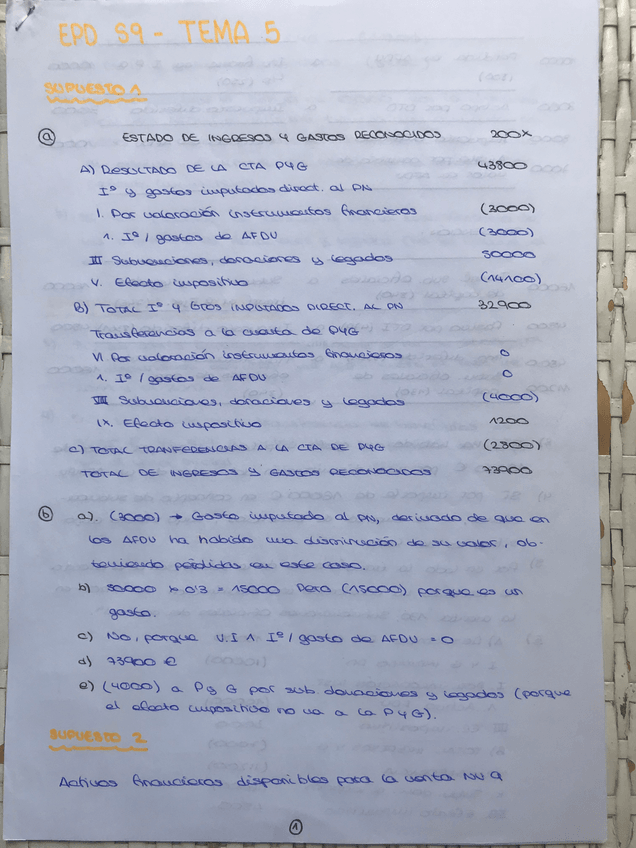 EPD S9 - TEMA 5
SUPUESTO 1
a ESTADO DE INGRESOS Y GASTOS RECONOCIDOS 200X
A) RESULTADO DE LA CTA PYG 43800
Iº y gastos imputados direct. al PN
I. Por valoración instrumentos financieros (3000)
1. Iº / gastos de AFDV (3000)
III Subvenciones, donaciones y legados 50000
V. Efecto impositivo (14100)
B) TOTAL Iº Y GTOS IMPUTADOS DIRECT. AL PN 32900
Transferencias a la cuenta de PYG
VI Por valoración instrumentos financieros 0
1. Iº / gastos de AFDV 0
VIII Subvenciones, donaciones y legados (4000)
IX. Efecto impositivo 1200
C) TOTAL TRANFERENCIAS A LA CTA DE PYG (2800)
TOTAL DE INGRESOS Y GASTOS RECONOCIDOS 73900
b a). (3000) → Gasto imputado al PN, derivado de que en
los AFDV ha habido una disminución de su valor, ob-
teniendo pérdidas en este caso.
b) 50000 x 0'3 = 15000 Pero (15000) porque es un
gasto.
c) No, porque V.I 1 Iº / gasto de AFDV = 0
d) 73900 €
e) (4000) a P y G por sub. donaciones y legados (porque
el efecto impositivo no va a la PYG).
SUPUESTO 2
Activos financieros disponibles para la venta NV 9
1